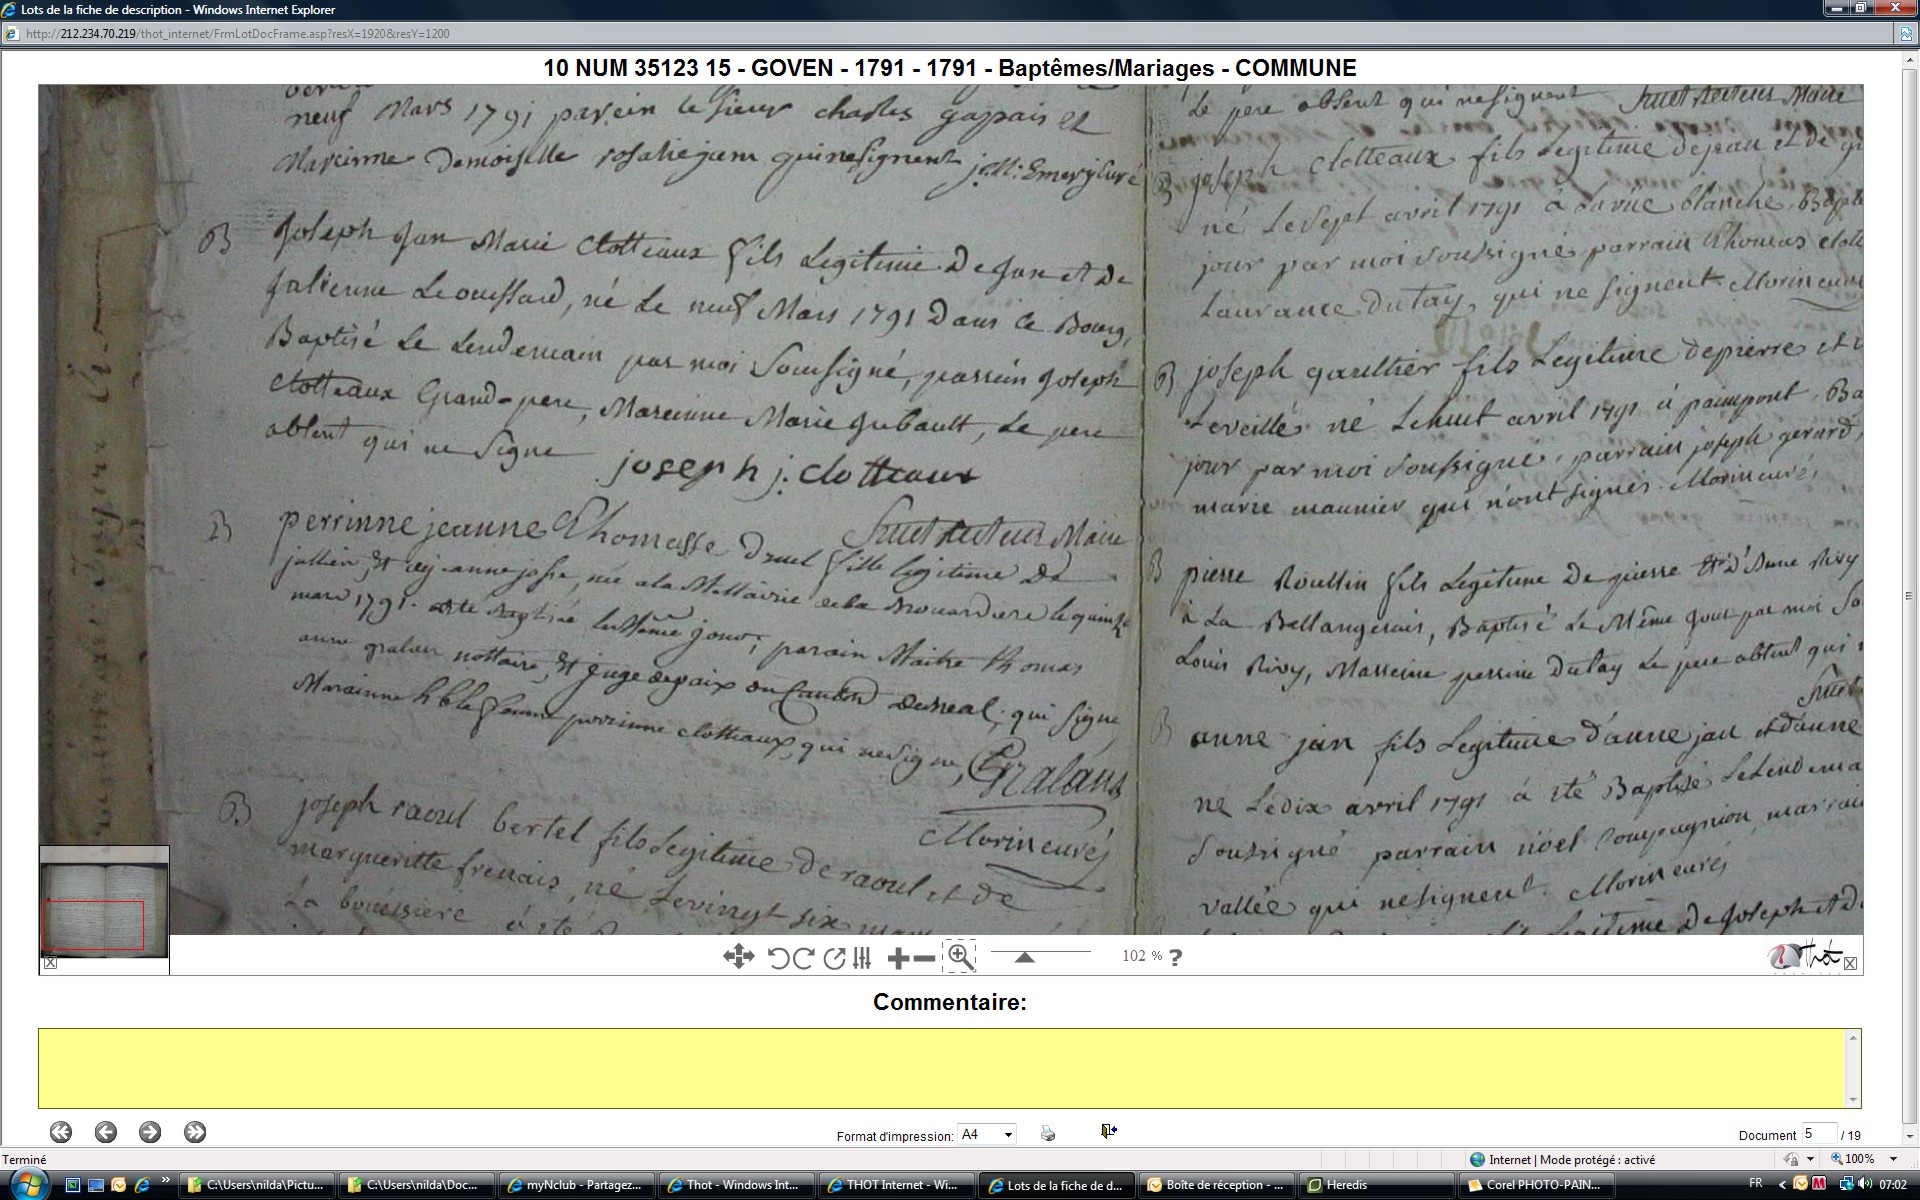 Lots de la fiche de description - Windows Internet Explorer
http://212.234.70.219/thot_internet/FrmLotDocFrame.asp?resX=1920&resY=1200
10 NUM 35123 15 - GOVEN - 1791 - 1791 - Baptêmes/Mariages - COMMUNE
neuf Mars 1791 parein le sieur charles gapais et
Mareinne Demoiselle rosalie jam qui ne signent
B Joseph Jan Marie Clotteaux fils Legitime De Jan et De
Julienne Leouissard, né Le neuf Mars 1791 Dans Le Bourg,
Baptisé Le Lendemain par moi Soussigné, parrein Joseph
Clotteaux Grand-pere, Mareinne Marie Gubault, Le pere
absent qui ne Signe
joseph j. clotteaux
Recteur Maire
B perrinne jeanne Thomasse Druel fille legitime De
jullien, Et née a la Mettairie de la le quinze
mars 1791. Baptisée le Même jour, parain Maitre thomas
anne gralan nottaire, Et juge de paix du Canton qui signe
Marainne h.ble femme perinne clotteaux, qui ne signe,
Gralans
Morin curé
B joseph raoul bertel fils Legitime de raoul et de
margueritte frenais, né Le vingt six mars
La bouëssiere a été
Le pere absent qui ne signent Recteur Maire
B joseph Clotteaux fils Legitime de jean et de
né Le Sept avril 1791 à La rüe blanche, Bapt
jour par moi Soussigné parrain Thomas clott
Laurance Dutay, qui ne signent Morin curé
B joseph gaultier fils Legitime de pierre et
Leveillé né Le huit avril 1791 à paimpont. Ba
jour par moi soussigné, parrain joseph gerard,
marie maunier qui n'ont signés. Morin curé,
B pierre Roullin fils Legitime De pierre Et D'Anne Rivy
à La Bellangerais, Baptisé Le Même jour par moi So
Louis Rivy, Marreine perrine Dutay Le pere absent qui
B anne jan fils Legitime d'anne jan et d'anne
né Le dix avril 1791 à été Baptisé Le Lendema
Soussigné parrain noel Compagnion, marrai
vallée qui ne signent. Morin curé
fils Legitime De Joseph et D
102 % ?
Thot
Commentaire:
Format d'impression: A4
Document 5 / 19
Terminé
Internet | Mode protégé : activé
100%
C:\Users\nilda\Pictu...
C:\Users\nilda\Doc...
myNclub - Partagez...
Thot - Windows Int...
THOT Internet - Wi...
Lots de la fiche de d...
Boîte de réception - ...
Heredis
Corel PHOTO-PAIN...
FR
07:02